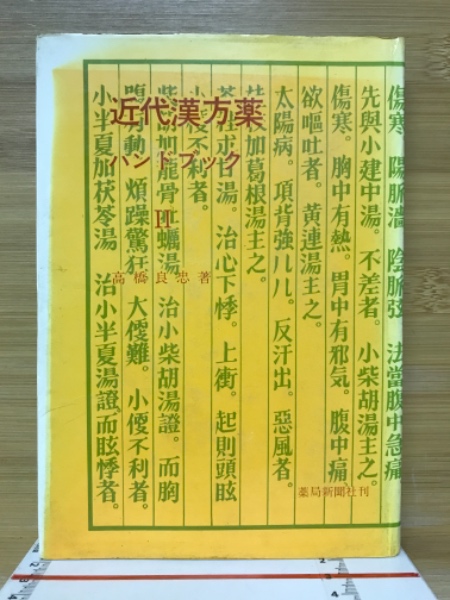 近代漢方薬
ハンドブック
II
高橋良忠著
薬局新聞社刊
傷寒 陽脈濇 陰脈弦 法當腹中急痛
先與小建中湯。不差者。小柴胡湯主之。
傷寒。胸中有熱。胃中有邪気。腹中痛
欲嘔吐者。黄連湯主之。
太陽病。項背強几几。反汗出。惡風者。
桂枝加葛根湯主之。
甘湯。治心下悸。上衝。起則頭眩
小便不利者。
柴胡加龍骨牡蠣湯 治小柴胡湯證。而胸
腹有動 煩躁驚狂 大便難。小便不利者。
小半夏加茯苓湯 治小半夏湯證而眩悸者。